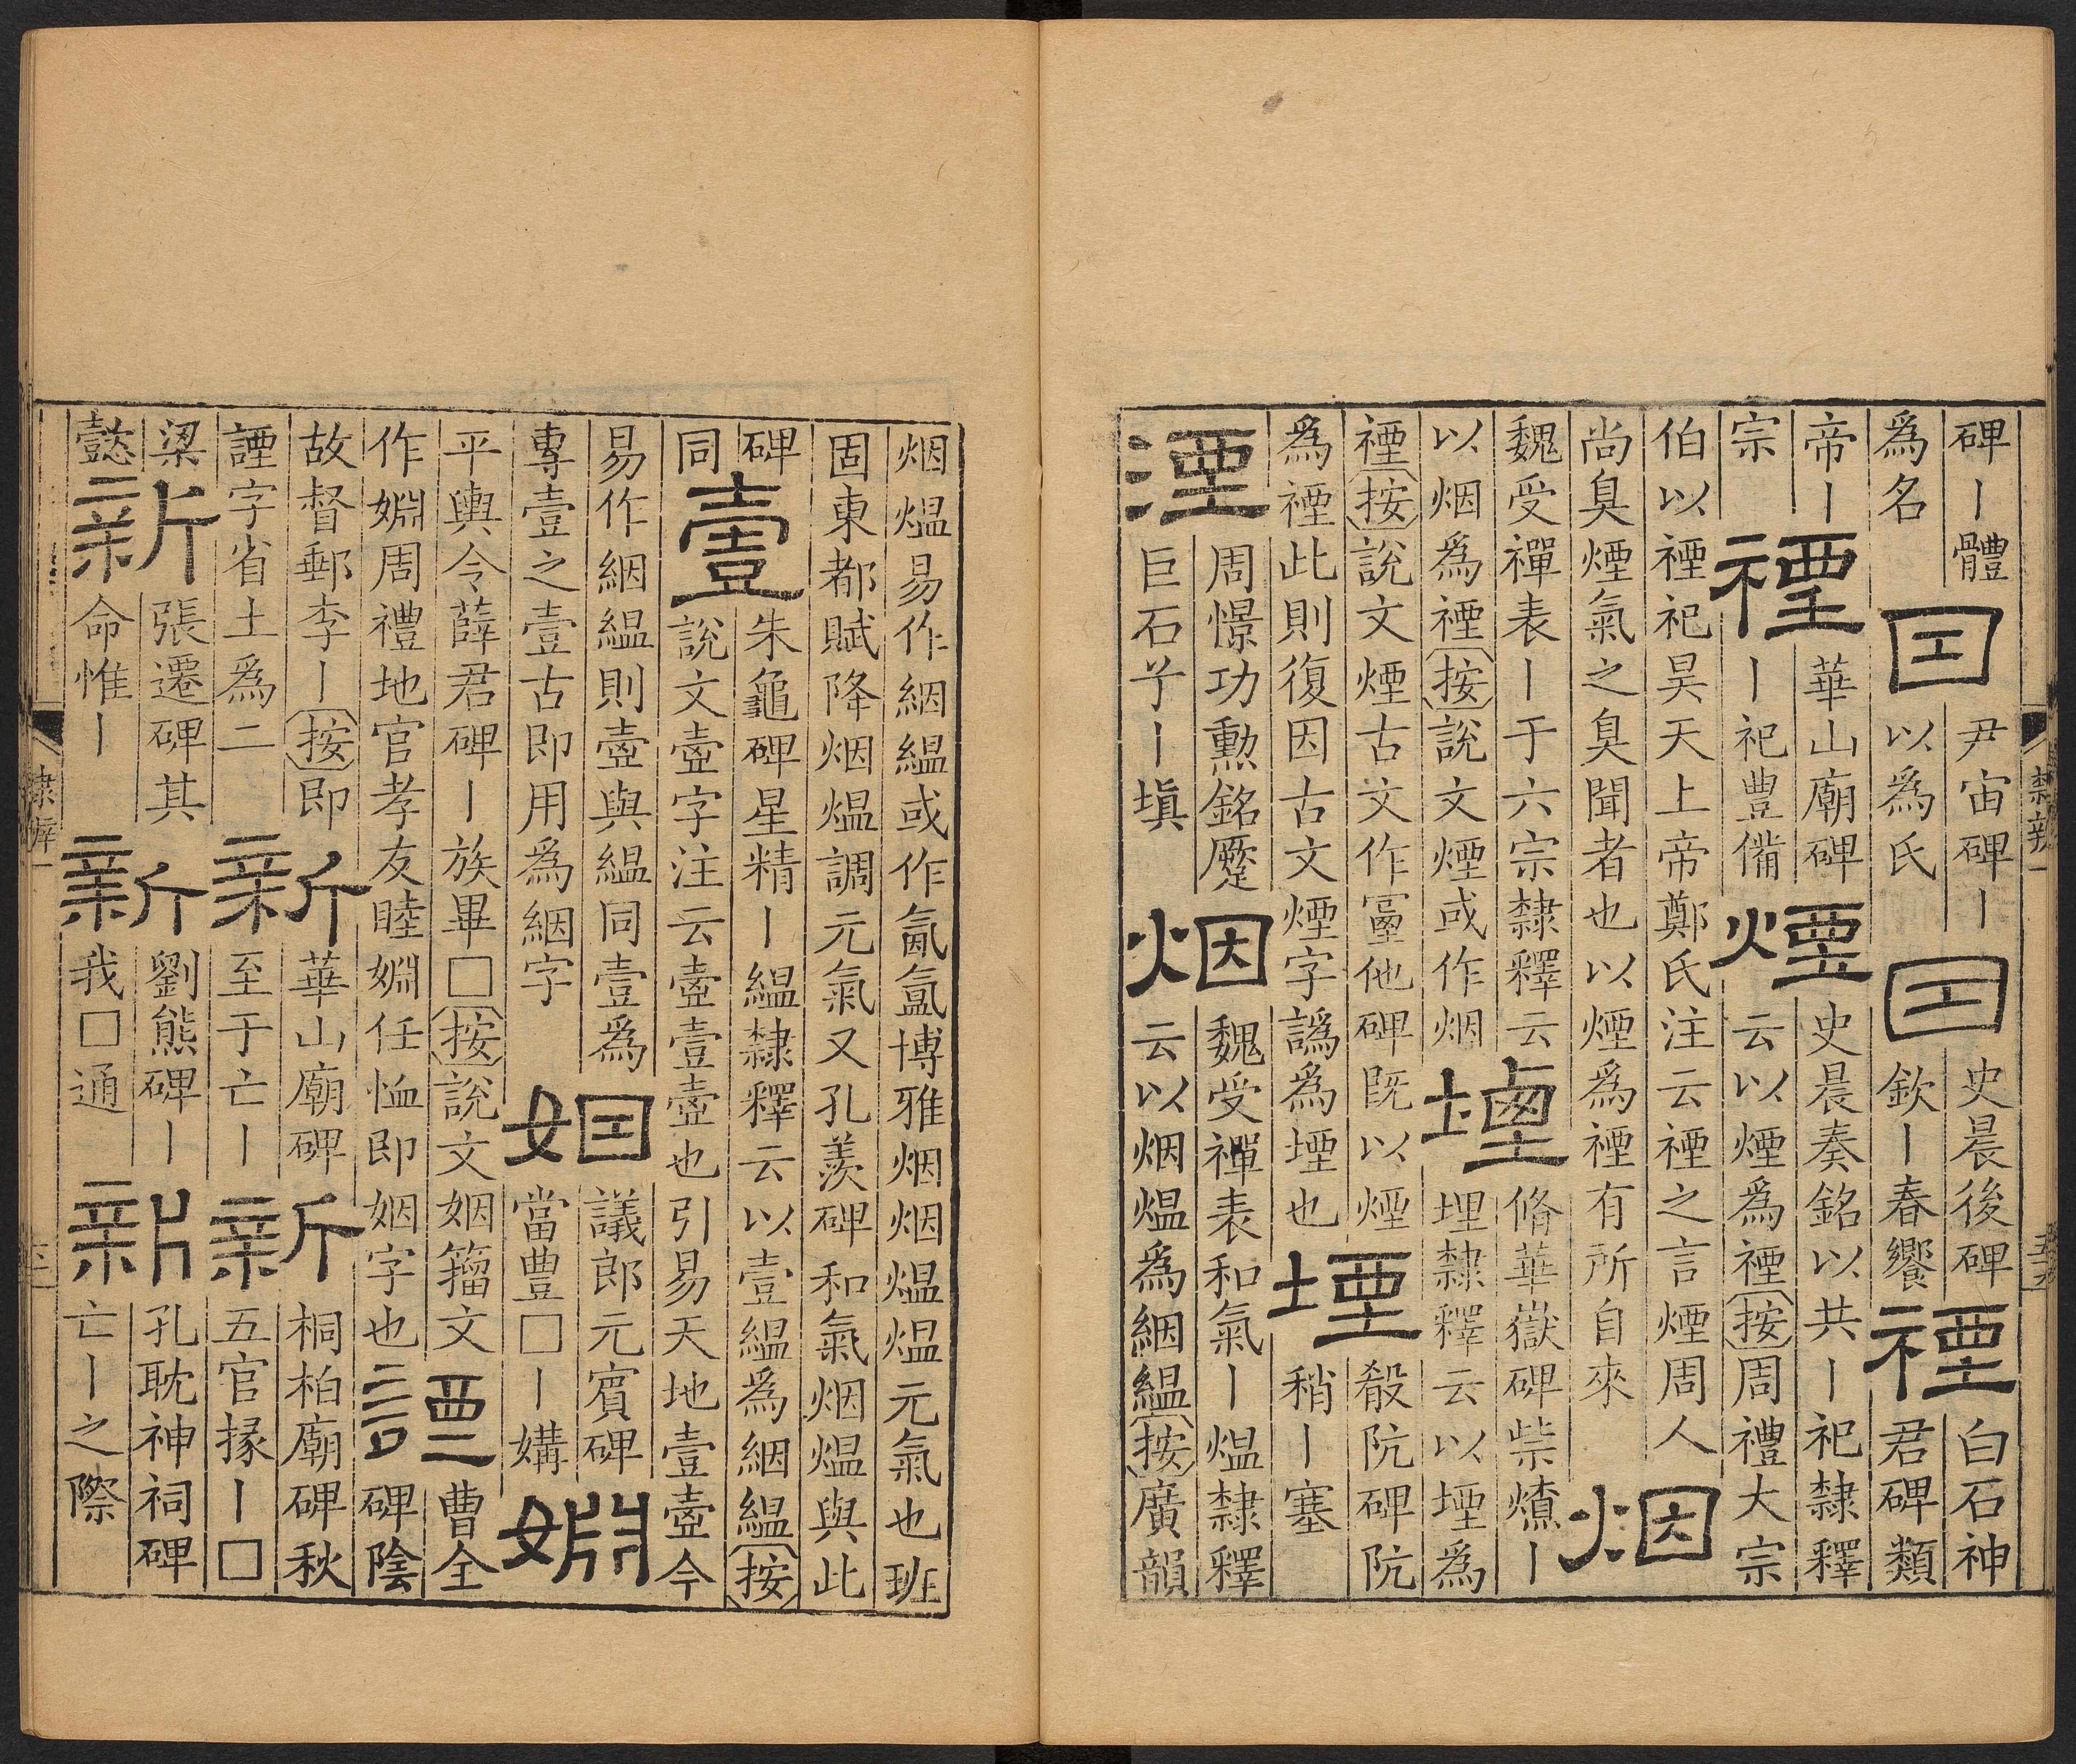 碑｜體
為名
囯
尹宙碑｜
以為氏
囯
史晨後碑
欽｜春饗
禋
白石神
君碑類
帝｜
宗
禋
華山廟碑
｜祀豊俻
煙
史晨奏銘以共｜祀隸釋
云以煙為禋按周禮大宗
伯以禋祀昊天上帝鄭氏注云禋之言煙周人
尚臭煙氣之臭聞者也以煙為禋有所自來
烟
魏受禪表｜于六宗隸釋云
以烟為禋按說文煙或作烟
脩華嶽碑柴燎｜
埋隸釋云以堙為
禋按說文煙古文作𡨾他碑既以煙
為禋此則復因古文煙字譌為堙也
堙
殽阬碑阬
稍｜塞
湮
周憬功勳銘蹷
巨石于｜塡
烟
魏受禪表和氣｜熅隸釋
云以烟熅為絪縕按廣韻
隸辨一
烟熅易作絪縕或作氤氳博雅烟烟熅熅元氣也班
固東都賦降烟熅調元氣又孔羨碑和氣烟熅與此
碑
同
壹
朱龜碑星精｜縕隸釋云以壹縕為絪縕按
說文壺字注云壺壹壺也引易天地壹壺今
易作絪縕則壺與縕同壹為
專壹之壹古即用為絪字
姻
議郎元賓碑
當豊□｜媾
婣
平輿令薛君碑｜族畢□按說文姻籀文
作婣周禮地官孝友睦婣任恤即姻字也
諲
曹全
碑陰
故督郵李｜按即
諲字省土為二
新
華山廟碑
至于亡｜
新
桐柏廟碑秋
五官掾｜□
梁
懿
新
張遷碑其
命惟｜
新
劉熊碑｜
我□通
新
孔耽神祠碑
亡｜之際
隸辨一